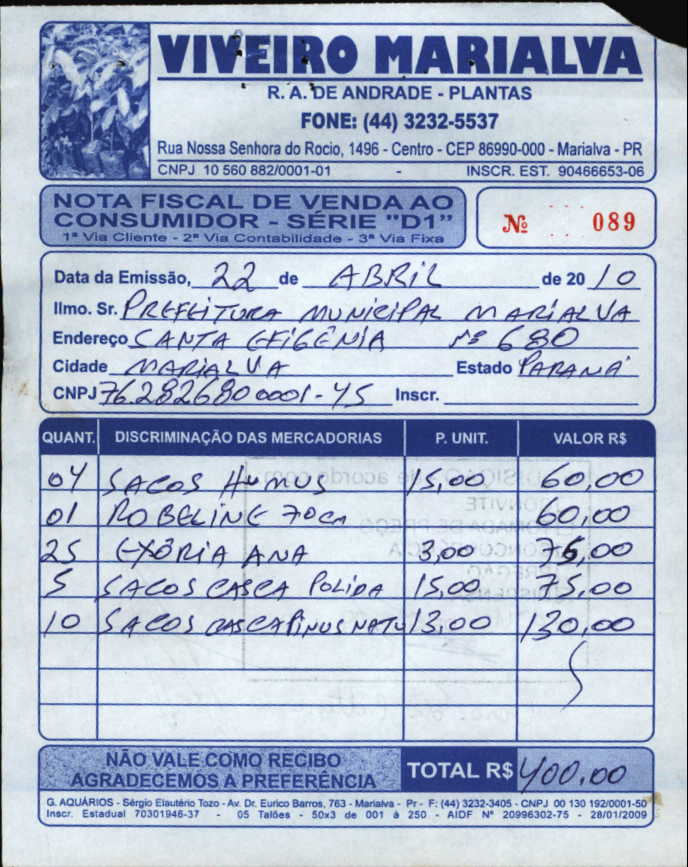 VIVEIRO MARIALVA
R. A. DE ANDRADE - PLANTAS
FONE: (44) 3232-5537
Rua Nossa Senhora do Rocio, 1496 - Centro - CEP 86990-000 - Marialva - PR
CNPJ 10 560 882/0001-01 - INSCR. EST. 90466653-06
NOTA FISCAL DE VENDA AO
CONSUMIDOR - SÉRIE "D1"
1ª Via Cliente - 2ª Via Contabilidade - 3ª Via Fixa
Nº 089
Data da Emissão, 22 de ABRIL de 20 10
Ilmo. Sr. PREFEITURA MUNICIPAL MARIALVA
Endereço CANTA EFIGÊNIA Nº 680
Cidade MARIALVA Estado PARANÁ
CNPJ 76.282680 0001-45 Inscr.
QUANT. DISCRIMINAÇÃO DAS MERCADORIAS P. UNIT. VALOR R$
04 SACOS HUMUS 15,00 60,00
01 ROBELINE 70cm 60,00
25 EXÓRIA ANA 3,00 75,00
5 SACOS CASCA POLIDA 15,00 75,00
10 SACOS CASCA PINUS NATU 13,00 130,00
NÃO VALE COMO RECIBO
AGRADECEMOS A PREFERÊNCIA
TOTAL R$ 400,00
G. AQUÁRIOS - Sérgio Elautério Tozo - Av. Dr. Eurico Barros, 763 - Marialva - Pr - F: (44) 3232-3405 - CNPJ 00 130 192/0001-50
Inscr. Estadual 70301946-37 - 05 Talões - 50x3 de 001 à 250 - AIDF Nº 20996302-75 - 28/01/2009